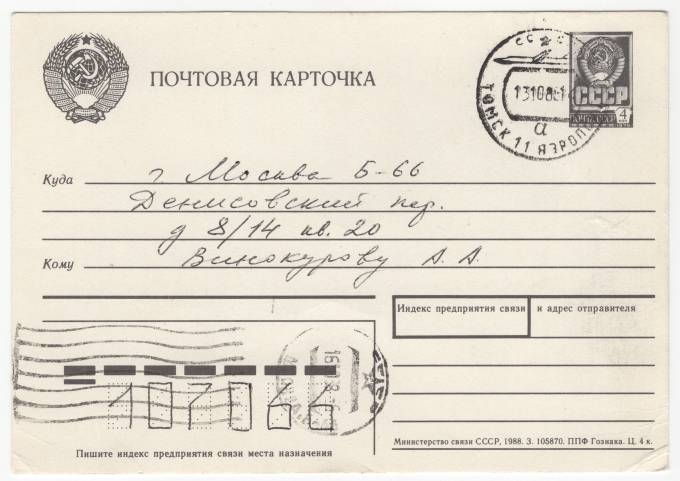 ПОЧТОВАЯ КАРТОЧКА
СССР
4
ТОМСК 11 АЭРОП
а
Куда г. Москва Б-66
Денисовский пер.
д 8/14 кв. 20
Кому Винокурову А. А.
Индекс предприятия связи и адрес отправителя
107066
Пишите индекс предприятия связи места назначения
Министерство связи СССР, 1988. З. 105870. ППФ Гознака. Ц. 4 к.